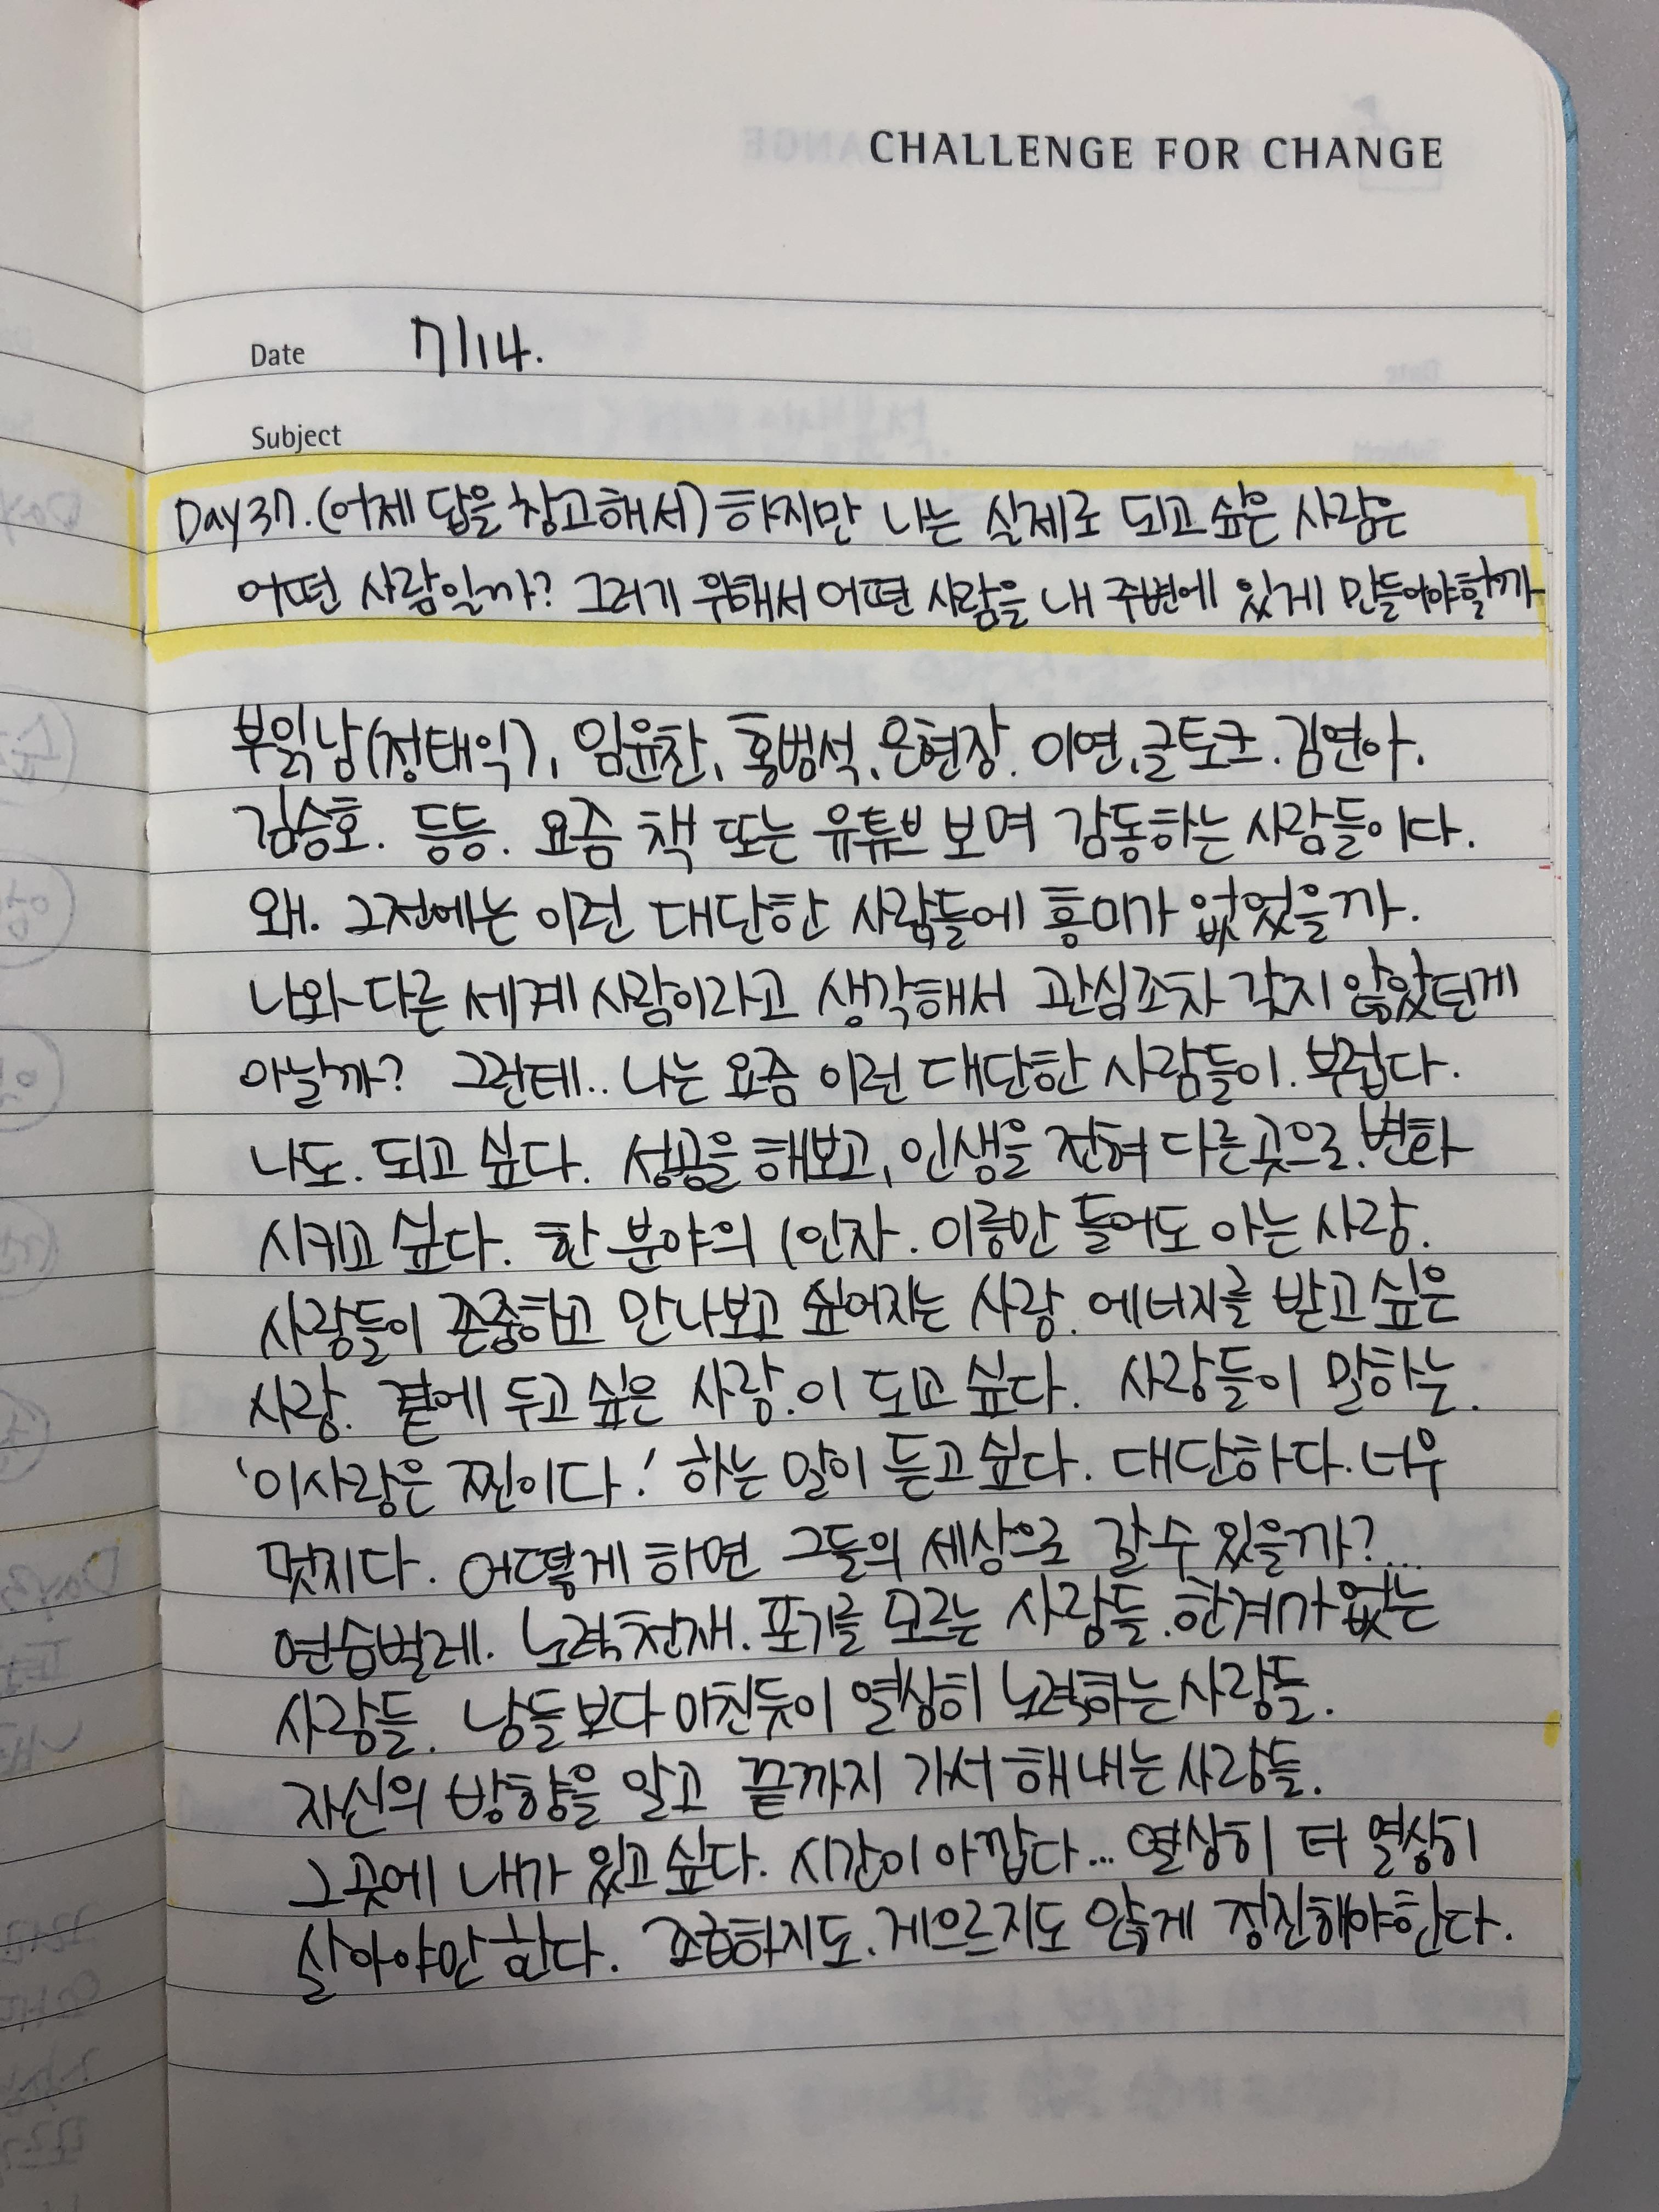 CHALLENGE FOR CHANGE
Date 7/14.
Subject
Day37. (어제 답을 참고해서) 하지만 나는 실제로 되고 싶은 사람은
어떤 사람일까? 그러기 위해서 어떤 사람을 내 주변에 있게 만들어야할까
부읽남(정태익), 임윤찬, 홍범석, 은현장. 이연, 글토크. 김연아.
김승호. 등등. 요즘 책 또는 유튜브 보며 감동하는 사람들이다.
왜. 그전에는 이런 대단한 사람들에 흥미가 없었을까.
나와 다른 세계 사람이라고 생각해서 관심조차 갖지 않았던게
아닐까? 그런데.. 나는 요즘 이런 대단한 사람들이. 부럽다.
나도. 되고 싶다. 성공을 해보고, 인생을 전혀 다른 곳으로. 변화
시키고 싶다. 한 분야의 1인자. 이름만 들어도 아는 사람.
사람들이 존중하고 만나보고 싶어지는 사람. 에너지를 받고 싶은
사람. 곁에 두고 싶은 사람.이 되고 싶다. 사람들이 말하는.
'이사람은 찐이다!' 하는 말이 듣고 싶다. 대단하다. 너무
멋지다. 어떻게 하면 그들의 세상으로 갈 수 있을까?...
연습벌레. 노력천재. 포기를 모르는 사람들. 한계가 없는
사람들. 남들보다 미친듯이 열심히 노력하는 사람들.
자신의 방향을 알고 끝까지 가서 해내는 사람들.
그 곳에 내가 있고 싶다. 시간이 아깝다... 열심히 더 열심히
살아야만 한다. 조급하지도. 게으르지도 않게 정진해야한다.